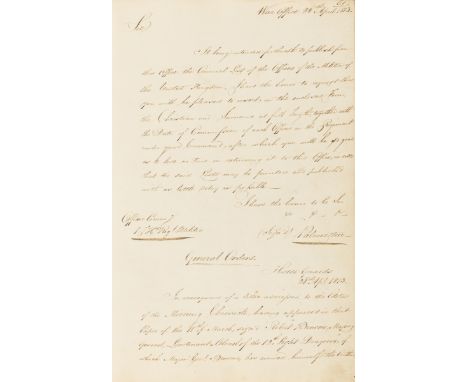 War Office 28th April 1813.
Sir
It being intended forthwith to publish from
this Office the General List of the Officers of the Militia of
the United Kingdom, I have the honor to request that
you will be pleased to insert in the enclosed Form,
the Christian and Surname at full length together with
the Date of Commission of each Officer in the Regiment
under your Command, after which you will be so good
as to lose no time in returning it to this Office, in order
that the said Lists may be printed and published
with as little delay as possible
I have the honor to be Sir
Officer Comm
Militia
Signed Palmerston
General Orders.
Horse Guards
28th Apl 1813.
In consequence of a Letter addressed to the Editor
of the Morning Chronicle having appeared in that
Paper of the 16th March, signed Robert Browne, Major
General, Lieutenant Colonel of the 12th Light Dragoons of
which Major Genl Browne has avowed himself the Author